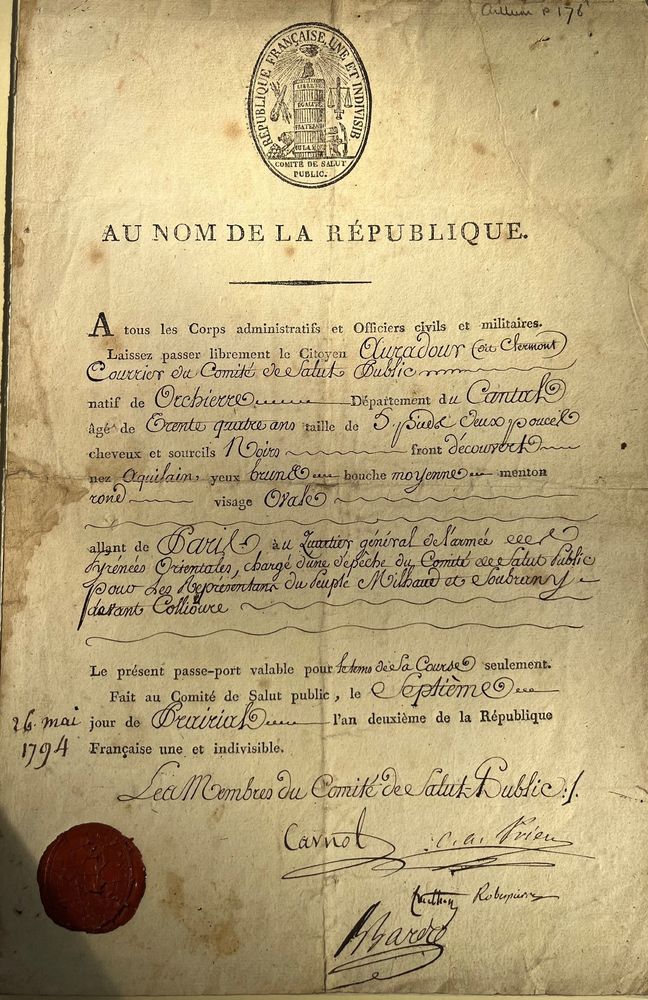 p 176
RÉPUBLIQUE FRANÇAISE, UNE ET INDIVISIB
LIBERTÉ
ÉGALITÉ
FRATERN
OU LA MOR
COMITÉ DE SALUT
PUBLIC.
AU NOM DE LA RÉPUBLIQUE.
A tous les Corps administratifs et Officiers civils et militaires.
Laissez passer librement le Citoyen Auradour (dit Clermont)
Courrier du Comité de Salut Public
natif de Orchierre Département du Cantal
âgé de Trente quatre ans taille de 5. pieds deux pouces
cheveux et sourcils Noirs front découvert
nez Aquilain, yeux bruns bouche moyenne menton
rond visage Ovale
allant de Paris au Quartier général de l'armée des
Pyrénées Orientales, chargé d'une dépêche du Comité de Salut Public
pour Les Représentans du Peuple Milhaud et Soubrany
devant Collioure
Le présent passe-port valable pour le tems de Sa Course seulement.
Fait au Comité de Salut public, le Septième
26. mai jour de Prairial l'an deuxième de la République
1794 Française une et indivisible.
Les Membres du Comité de Salut Public ./.
Carnot C. A. Prieur
Couthon Robespierre
B Barère